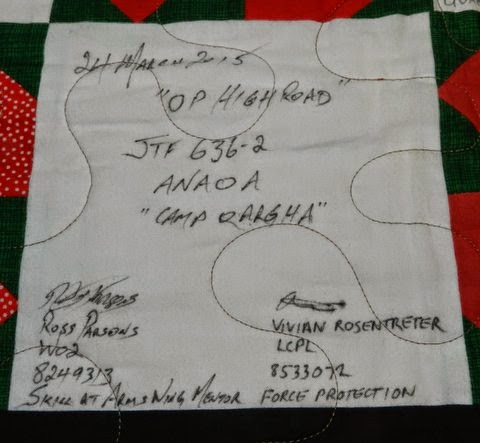 24 MARCH 2015
"OP HIGH ROAD"
JTF 636-2
ANAOA
"CAMP QARGHA"
ROSS PARSONS
WO2
8249313
SKILL AT ARMS WNG MENTOR
VIVIAN ROSENTRETER
LCPL
8533072
FORCE PROTECTION